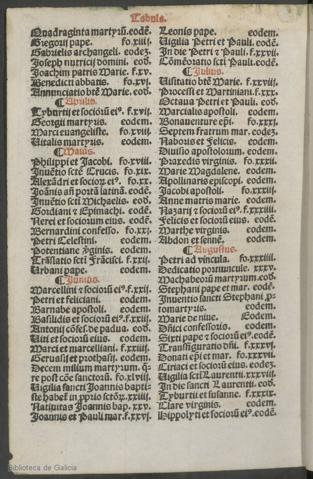 Tabula.
Quadraginta martyrũ. eodẽ.
Gregorij pape. fo.xiiij.
Gabrielis archangeli. eodez.
Joseph nutricij domini. eod.
Joachim patris Marie. f.xv.
Benedicti abbatis. fo.xvj.
Annunciatio btẽ Marie. eod.
¶Aprilis.
Tyburtij et sociorũ eiꝰ. f.xvij.
Georgij martyris. eodem.
Marci euangeliste. fo.xviij.
Uitalis martyris. eodem.
¶Maius.
Philippi et Jacobi. fo.xviij.
Inuẽtio sctẽ Crucis. f.xix.
Alexãdri et socioꝝ eiꝰ. f.xx.
Joãnis añ portã latinã. eodẽ.
Inuẽtio scti Michaelis. eod.
Gordiani ⁊ Epimachi. eodẽ.
Nerei et sociorum eius. eodẽ.
Bernardini confesso. fo.xxj.
Petri Celestini. eodem.
Potentiane ꝟginis. eodem.
Trãslatio scti Frãcisci. f.xxij.
Urbani pape. eodem.
¶Junius.
Marcellini ⁊ socioꝝ eiꝰ f.xxij.
Petri et feliciani. eodem.
Barnabe apostoli. eodem.
Basilidis et socioꝝ eiꝰ f.xxiij.
Antonij cõfes̃. de padua. eod.
Uiti et sociorũ eius. eodem.
Marci et marcelliani. f.xxiij.
Geruasij et prothasij. eodem.
Decem milium martyrum. q̃-
re post cõe sanctorũ. fo.xlviij.
Uigilia sancti Joannis bapti-
ste habet̃ in ꝓprio sctõꝝ. xxiiij.
Natiuitas Joannis bap. xxv.
Joannis et Pauli mar̃. f.xxvj.
Leonis pape. eodem.
Uigilia Petri et Pauli. eodẽ.
In die Petri ⁊ Pauli. f.xxvij.
Cõmẽoratio scti Pauli. eodẽ.
¶Julius.
Uisitatio btẽ Marie. f.xxviij.
Processi et Martiniani. f.xxx.
Octaua Petri et Pauli. eod.
Marcialis apostoli. eodem.
Bonauenture epĩ. fo.xxxj.
Septem fratrum mar. eodez.
Naboris et Felicis. eodem.
Diuisio apostolorum. eodem.
Praxedis virginis. fo.xxxij.
Marie Magdalene. eodem.
Apollinaris episcopi. eodem.
Jacobi apostoli. fo.xxxiij.
Anne matris marie. eodem.
Nazarij ⁊ socioꝝ eiꝰ. f.xxxiiij.
Felicis et sociorũ eius. eodẽ.
Marthe virginis. eodem.
Abdon et sennẽ. eodem.
¶Augustus.
Petri ad vincula. fo.xxxiiij.
Dedicatio portiuncule. xxxv.
Machabeorũ martyrum. eod.
Stephani pape et mar. eodẽ.
Inuentio sancti Stephani ꝓ-
tomartyris. eodem.
Marie de niue. Eodem.
Dñici confessoris. eodem.
Sixti pape ⁊ socioꝝ eiꝰ. eodẽ.
Trãsfiguratio dñi. f.xxxvj.
Donati epĩ et mar. fo.xxxvij.
Ciriaci et sociorũ eius. eodez.
Uigilia sctĩ Laurentij. xxxviij.
In die sancti Laurentij. eod.
Tyburtij et susanne. f.xxxix.
Clare virginis. eodem.
Hippolyti et sociorũ eiꝰ. eodẽ.
Biblioteca de Galicia